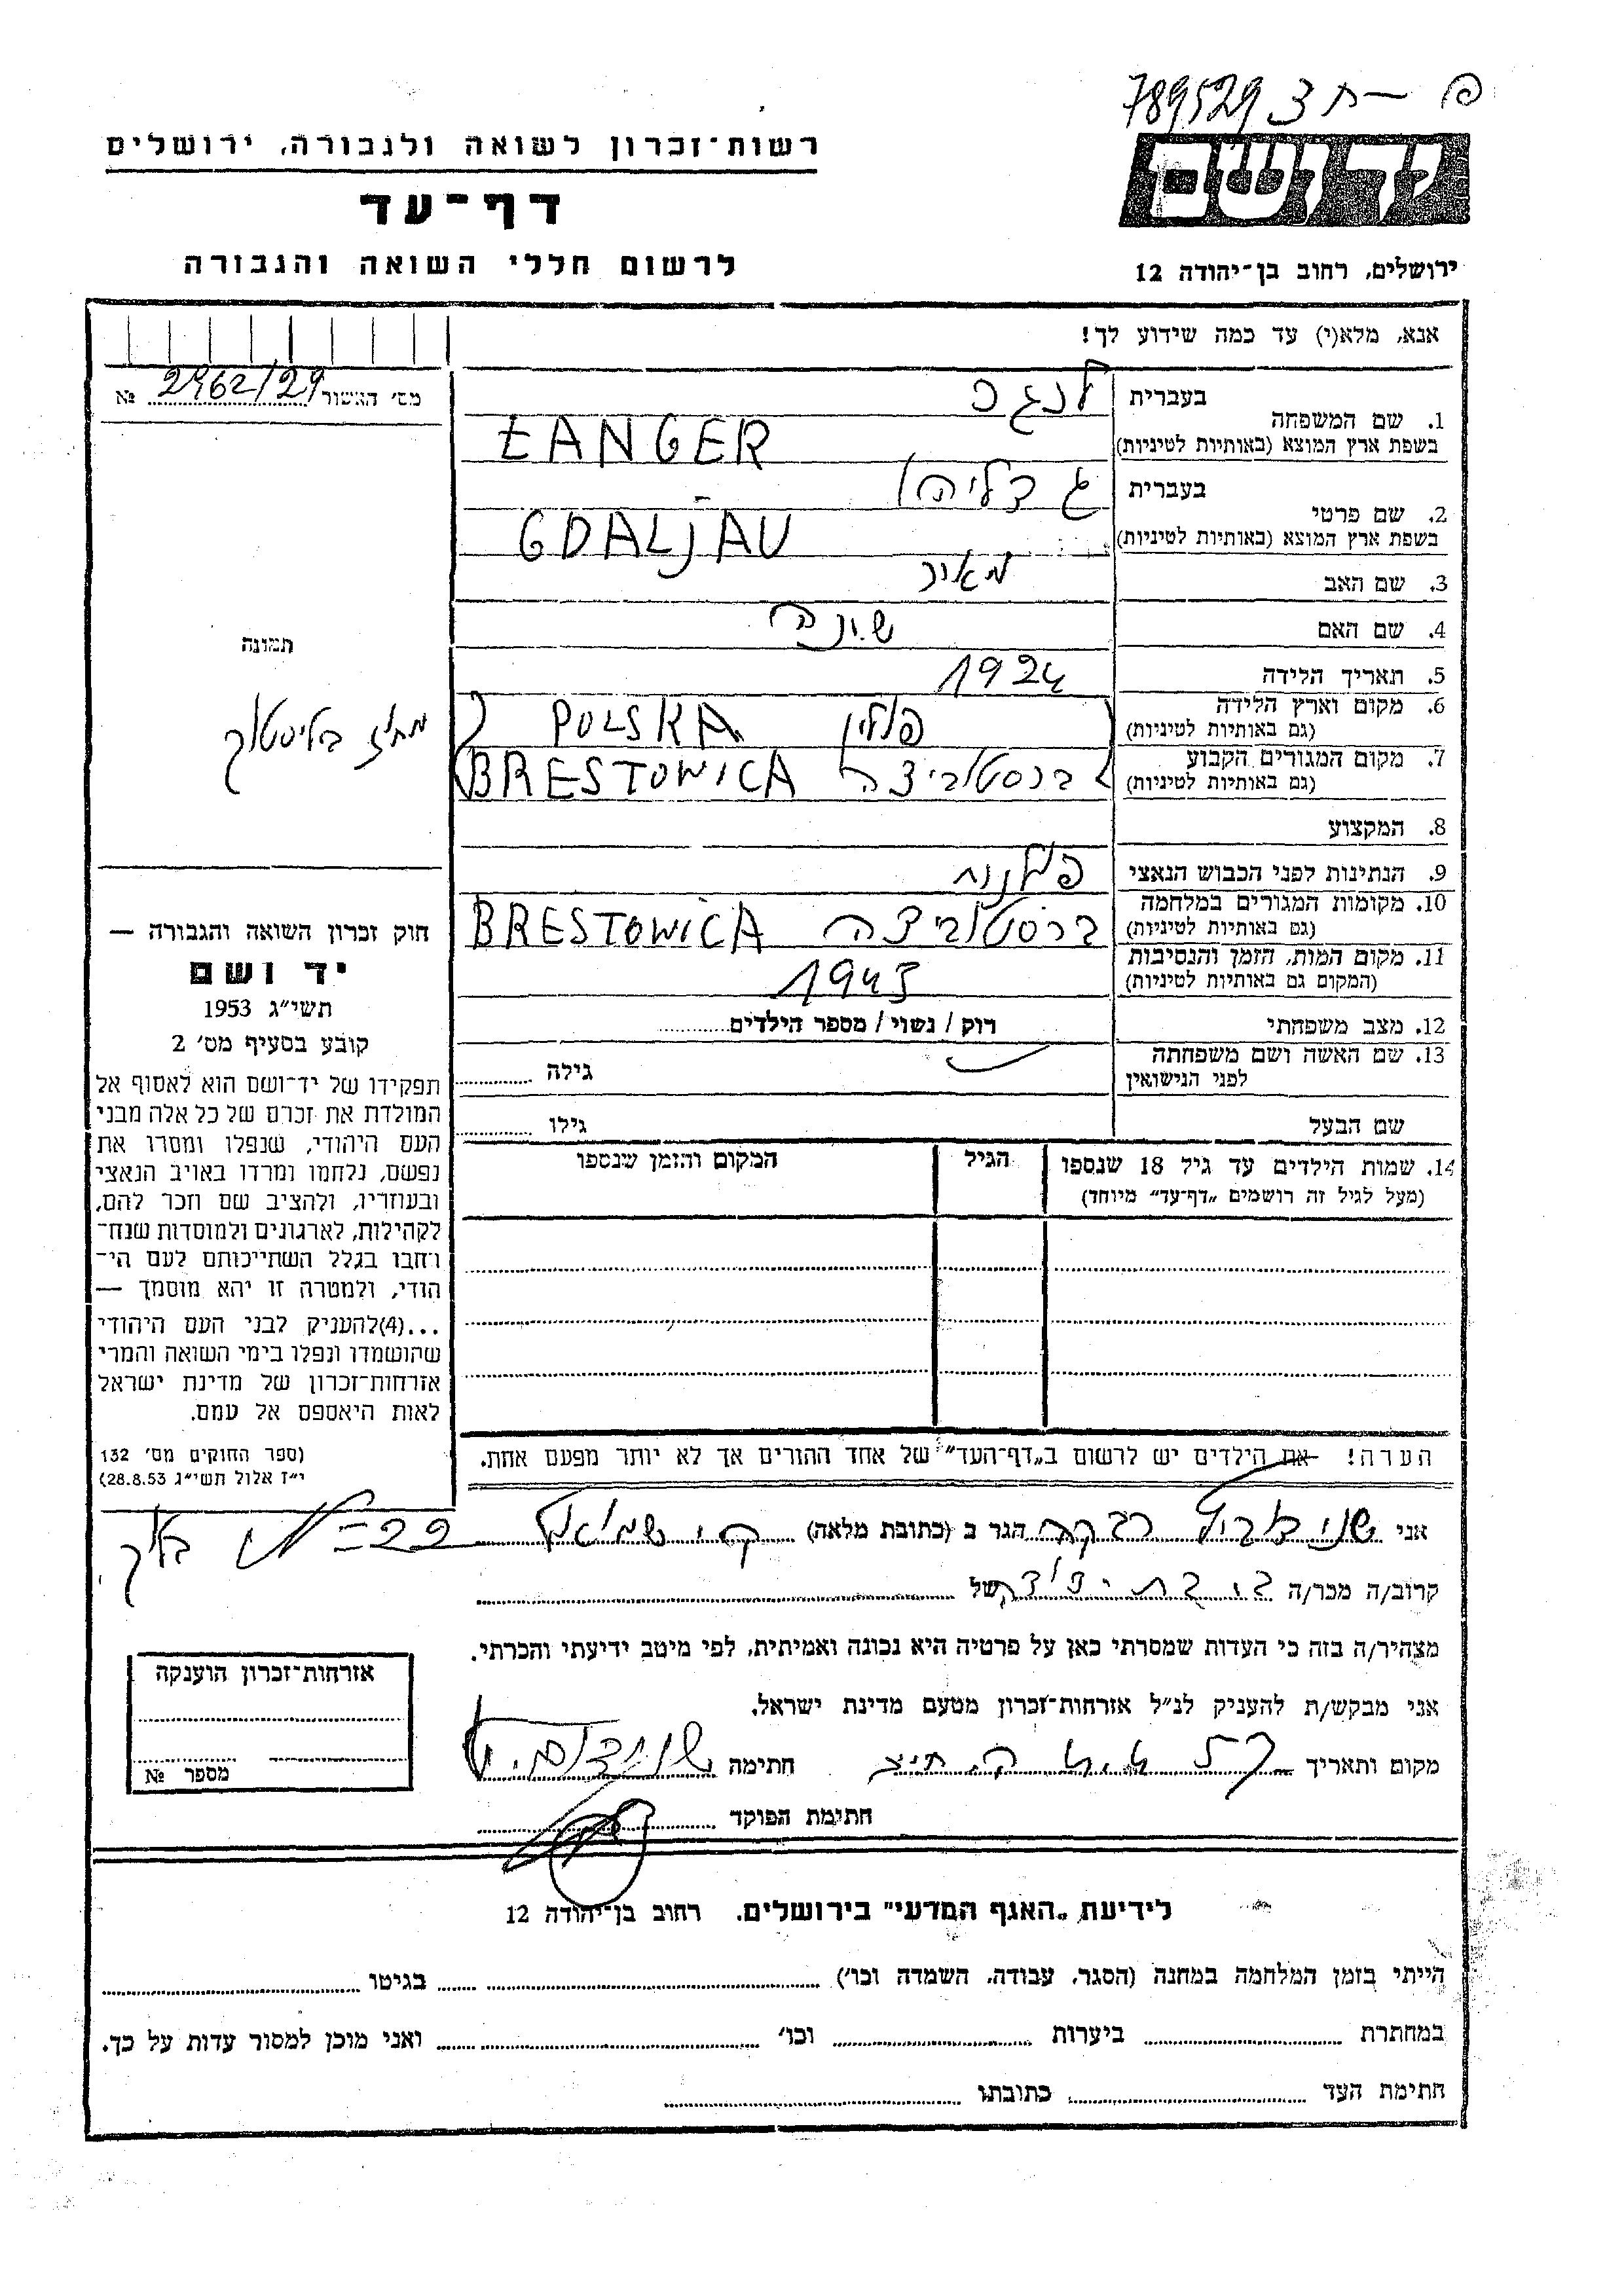 789529 ת צ — פ
רשות־זכרון לשואה ולגבורה, ירושלים
יד ושם
דף־עד
לרשום חללי השואה והגבורה
ירושלים, רחוב בן־יהודה 12
אנא, מלא(י) עד כמה שידוע לך!
מס׳ האשור 2962/29 №
1. שם המשפחה
בעברית לנגר
בשפת ארץ המוצא (באותיות לטיניות) ŁANGER
2. שם פרטי
בעברית גדליהו
בשפת ארץ המוצא (באותיות לטיניות) GDALJAU
3. שם האב מאיר
4. שם האם
5. תאריך הלידה 1924
6. מקום וארץ הלידה פולין POLSKA
(גם באותיות לטיניות)
7. מקום המגורים הקבוע ברסטוביצה BRESTOWICA
(גם באותיות לטיניות)
תמונה
מחוז ביאליסטוק
8. המקצוע
9. הנתינות לפני הכבוש הנאצי פולנית
10. מקומות המגורים במלחמה ברסטוביצה BRESTOWICA
(גם באותיות לטיניות)
11. מקום המות, הזמן והנסיבות 1943
(המקום גם באותיות לטיניות)
12. מצב משפחתי רוק / נשוי / מספר הילדים
13. שם האשה ושם משפחתה גילה
לפני הנישואין
שם הבעל גילו
14. שמות הילדים עד גיל 18 שנספו הגיל המקום והזמן שנספו
(מעל לגיל זה רושמים „דף־עד״ מיוחד)
חוק זכרון השואה והגבורה —
יד ושם
תשי״ג 1953
קובע בסעיף מס׳ 2
תפקידו של יד־ושם הוא לאסוף אל
המולדת את זכרם של כל אלה מבני
העם היהודי, שנפלו ומסרו את
נפשם, נלחמו ומרדו באויב הנאצי
ובעוזריו, ולהציב שם וזכר להם,
לקהילות, לארגונים ולמוסדות שנח־
רחבו בגלל השתייכותם לעם הי־
הודי, ולמטרה זו יהא מוסמך —
...(4)להעניק לבני העם היהודי
שהושמדו ונפלו בימי השואה והמרי
אזרחות־זכרון של מדינת ישראל
לאות היאספם אל עמם.
(ספר החוקים מס׳ 132
י״ז אלול תשי״ג 28.8.53)
הערה! את הילדים יש לרשום ב„דף־העד״ של אחד ההורים אך לא יותר מפעם אחת.
אני רבקה הגר ב (כתובת מלאה) ק. שמואל 22
קרוב/ה מכר/ה בת דוד של
מצהיר/ה בזה כי העדות שמסרתי כאן על פרטיה היא נכונה ואמיתית, לפי מיטב ידיעתי והכרתי.
אני מבקש/ת להעניק לנ״ל אזרחות־זכרון מטעם מדינת ישראל.
מקום ותאריך חתימה
חתימת הפוקד
אזרחות־זכרון הוענקה
מספר №
לידיעת „האגף המדעי״ בירושלים. רחוב בן־יהודה 12
הייתי בזמן המלחמה במחנה (הסגר, עבודה, השמדה וכו׳) בגיטו
במחתרת ביערות וכו׳ ואני מוכן למסור עדות על כך.
חתימת העד כתובתו